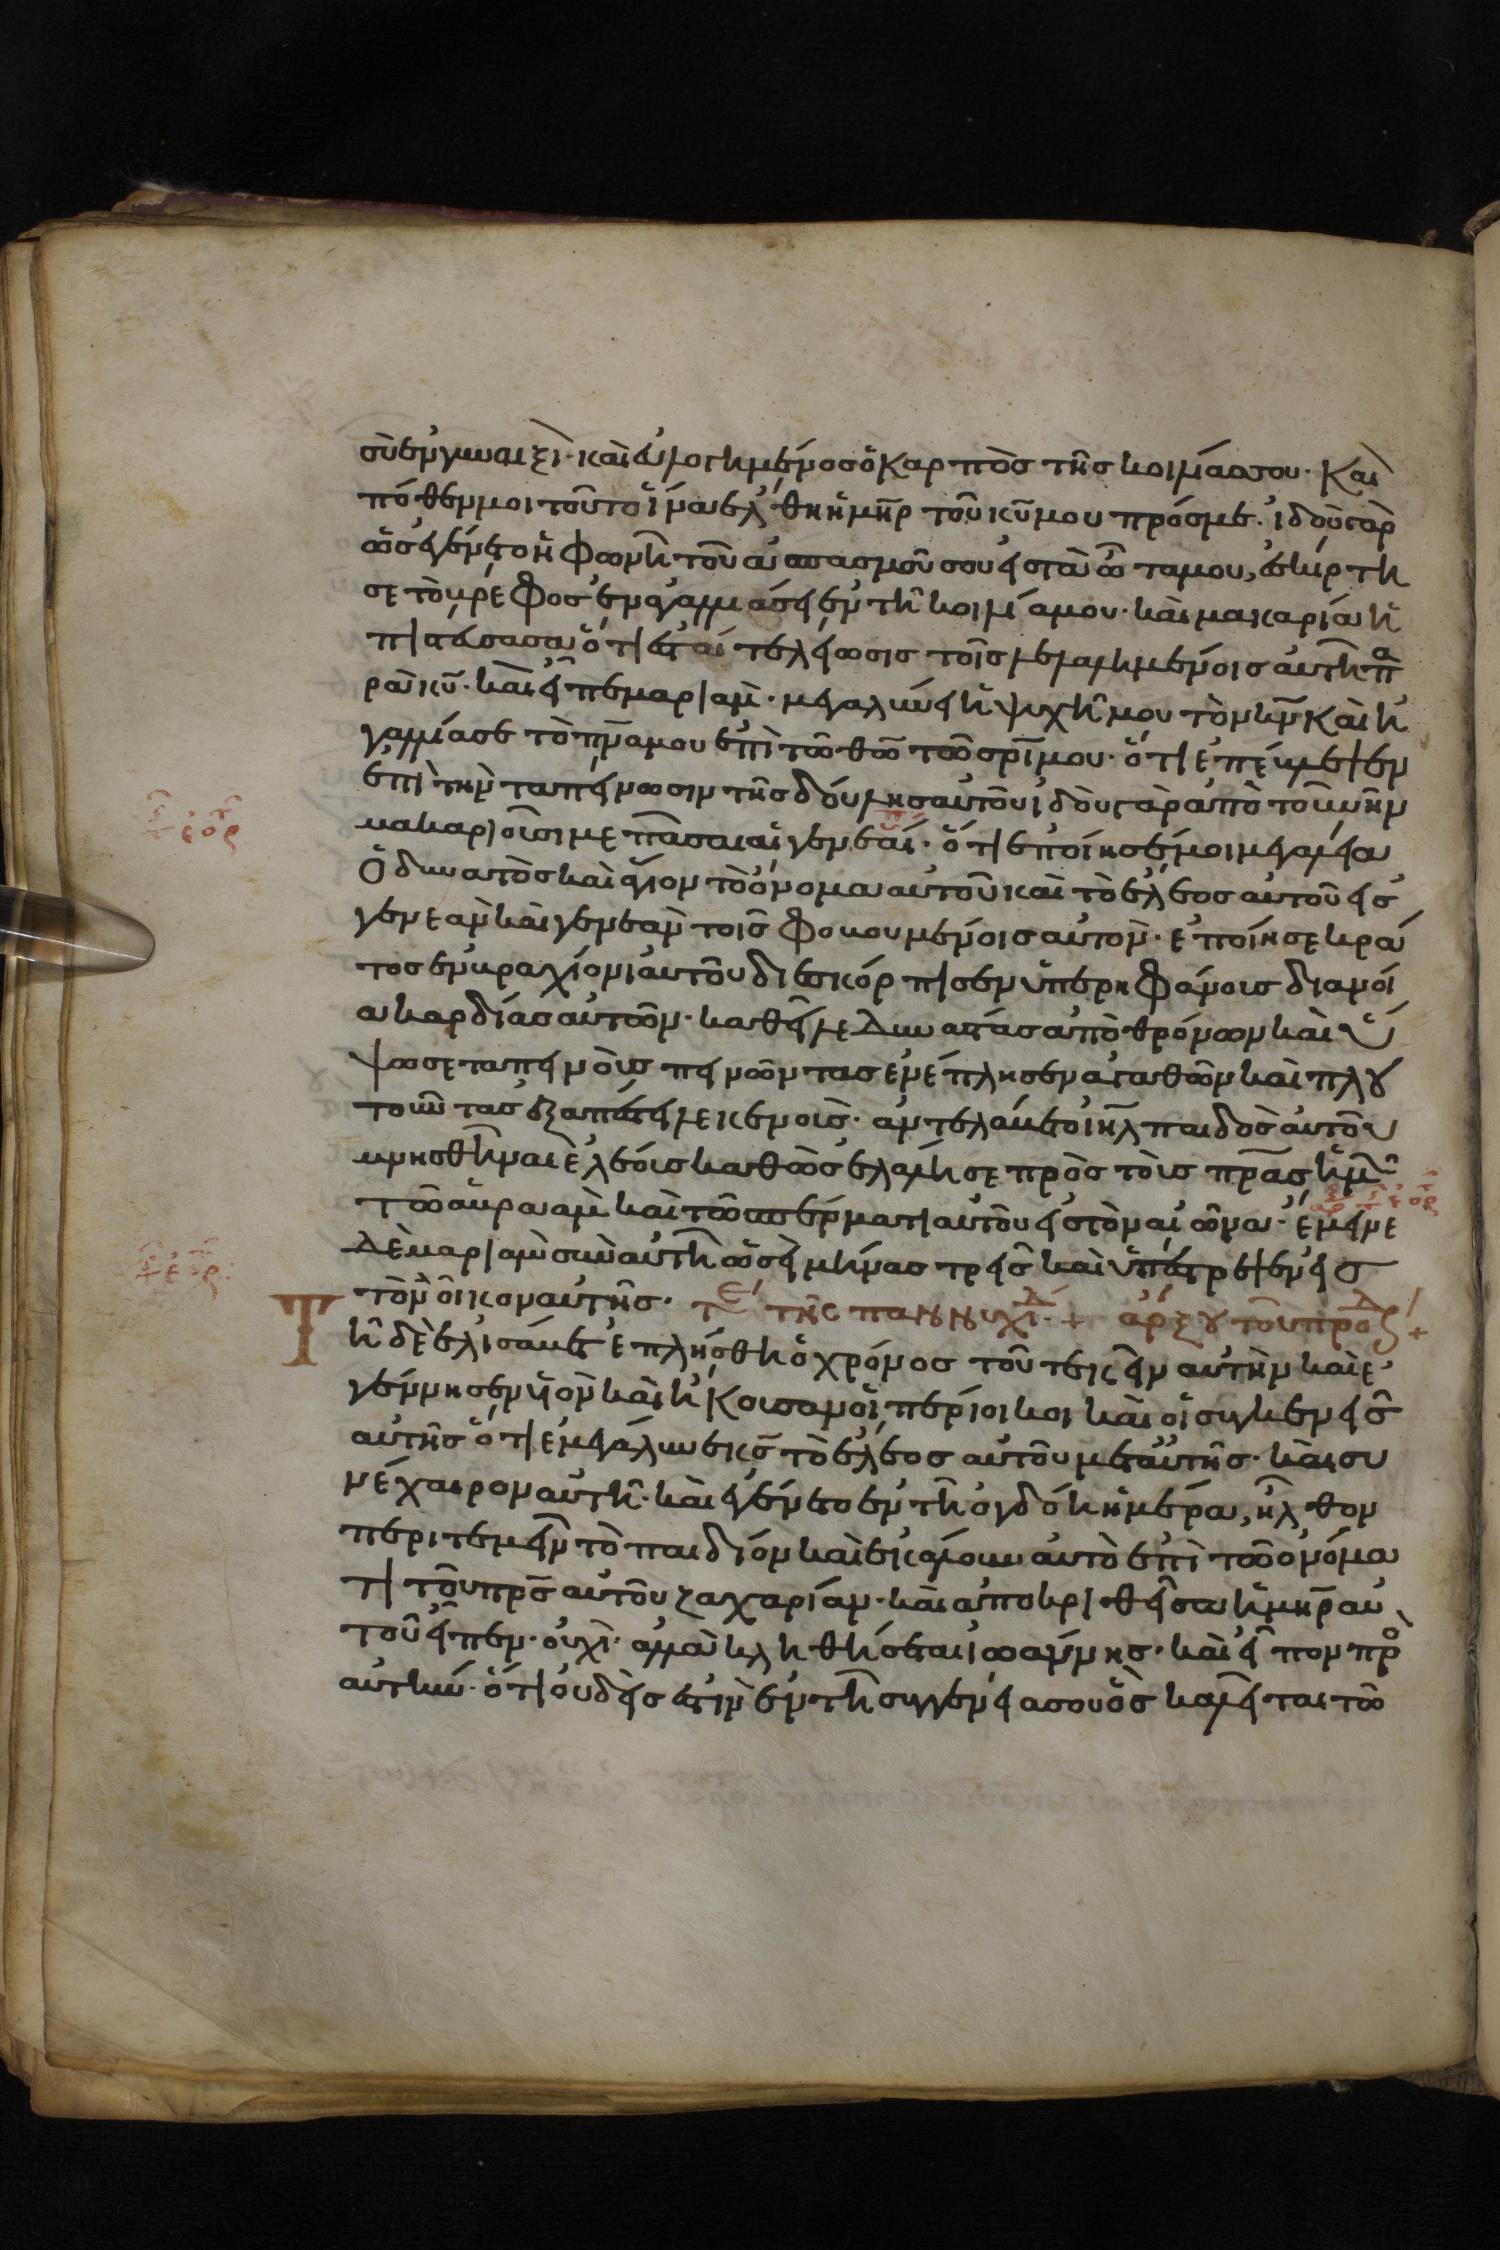 σὺ ἐν γυναιξὶ· καὶ εὐλογημένος ὁ καρπὸς τῆς κοιλίας σου· Καὶ
πόθεν μοι τοῦτο ἵνα ἔλθη ἡ μηρ τοῦ κυ μου πρός με· ἰδοὺ γὰρ
ὡς ἐγένετο ἡ φωνὴ τοῦ ἀσπασμοῦ σου εἰς τὰ ὦτα μου, ἐσκίρτη
σε τὸ βρέφος ἐν ἀγαλλιάσει ἐν τῆ κοιλία μου· καὶ μακαρία ἡ
πιστεύσασα ὅτι ἔσται τελείωσις τοῖς λελαλημένοις αὐτῆ πα
ρὰ κυ· καὶ εἶπε μαριὰμ· μεγαλύνει ἡ ψυχή μου τὸν κν καὶ ἠ
γαλλίασε τὸ πνα μου ἐπὶ τῶ θῶ τῶ σρι μου· ὅτι ἐπέβλεψεν
ἐπὶ τὴν ταπείνωσιν τῆς δούλης αὐτοῦ ἰδοὺ γὰρ ἀπὸ τοῦ νῦν
μακαριοῦσι με πᾶσαι αἱ γενεαί· ὅτι ἐποίησέ μοι μεγαλεῖα
ὁ δυνατὸς καὶ ἅγιον τὸ ὄνομα αὐτοῦ καὶ τὸ ἔλεος αὐτοῦ εἰς
γενεὰν καὶ γενεὰν τοῖς φοβουμένοις αὐτόν· ἐποίησε κρά
τος ἐν βραχίονι αὐτοῦ διεσκόρπισεν ὑπερηφάνοις διανοί
α καρδίας αὐτῶν· καθεῖλε δυνάστας ἀπὸ θρόνων καὶ ὕ
ψωσε ταπεινοὺς πεινῶντας ἐνέπλησεν ἀγαθῶν καὶ πλου
τοῦντας ἐξαπέστειλε κενοῖς· ἀντελάβετο ιηλ παιδὸς αὐτοῦ
μνησθῆναι ἐλέοις καθὼς ἐλάλησε πρὸς τοὺς πρας ἡμῶν
τῶ ἀβραὰμ καὶ τῶ σπέρματι αὐτοῦ εἰς τὸν αἰῶνα· ἔμεινε
δὲ μαριὰμ σὺν αὐτῆ ὡσεὶ μῆνας τρεῖς καὶ ὑπέστρεψεν εἰς
τὸν οἶκον αὐτῆς. τε τῆς παννυχίδ + ἄρξου τοῦ προδ +
Τῆ δὲ ἐλισάβετ ἐπλήσθη ὁ χρόνος τοῦ τεκεῖν αὐτὴν καὶ ἐ
γέννησεν υἱὸν καὶ ἤκουσαν οἱ περίοικοι καὶ οἱ συγγενεῖς
αὐτῆς ὅτι ἐμεγάλυνε κς τὸ ἔλεος αὐτοῦ μετ αὐτῆς· καὶ συ
νέχαιρον αὐτῆ· καὶ ἐγένετο ἐν τῆ ὀγδόη ἡμέρα, ἦλθον
περιτεμεῖν τὸ παιδίον καὶ ἐκάλουν αὐτὸ ἐπὶ τῶ ὀνόμα
τι τοῦ πρς αὐτοῦ ζαχαρίαν· καὶ ἀποκριθεῖσα ἡ μηρ αὐ
τοῦ εἶπεν· οὐχὶ· ἀλλὰ κληθήσεται ἰωάννης· καὶ εἶπον πρὸ
αὐτὴν· ὅτι οὐδεὶς ἐστὶν ἐν τῆ συγγενεία σου ὃς καλεῖται τῶ